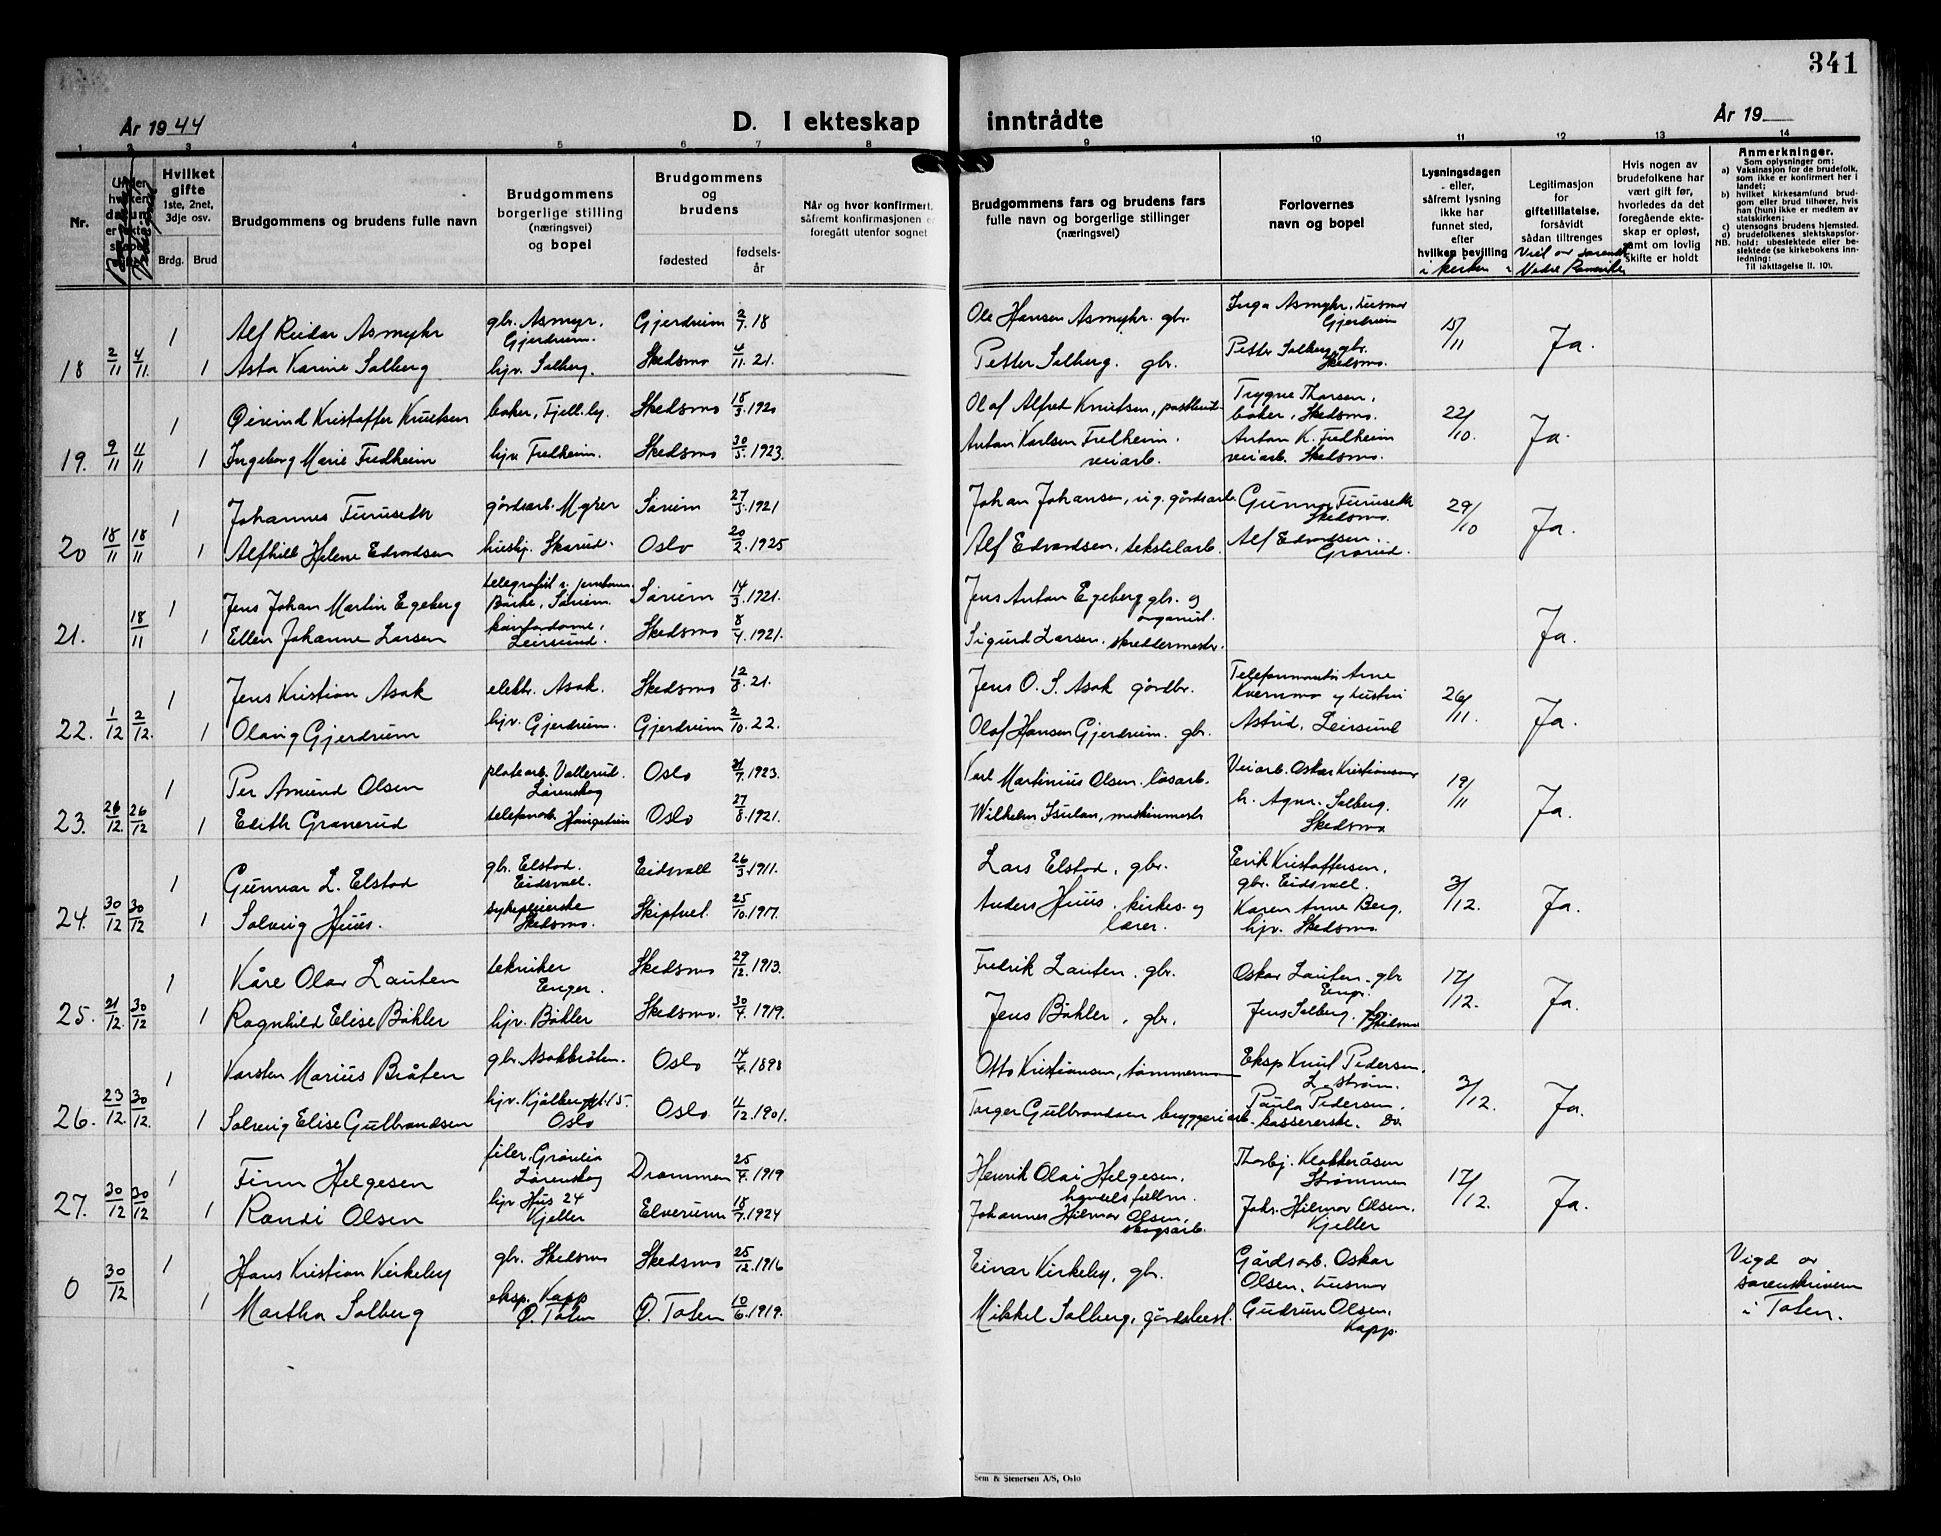 341
År 1944
D. I ekteskap inntrådte
År 19
1 2 3 4 5 6 7 8 9 10 11 12 13 14
Nr.
Hvilket gifte
1ste, 2net, 3dje osv.
Brdg. Brud
Brudgommens og brudens fulle navn
Brudgommens borgerlige stilling (næringsvei) og bopel
Brudgommens og brudens
fødested
fødsels-år
Når og hvor konfirmert,
såfremt konfirmasjonen e
foregått utenfor sognet
Brudgommens fars og brudens fars
fulle navn og borgerlige stillinger
(næringsvei)
Forlovernes navn og bopel
Lysningsdagen
- eller,
såfremt lysning
ikke har
funnet sted,
efter
hvilken bevilling
i kirken
Legitimasjon
for
giftetillatelse,
forsåvidt
sådan tiltrenges
Hvis nogen av
brudefolkene har
vært gift før,
hvorledes da det
foregående ekte-
skap er opløst,
samt om lovlig
skifte er holdt
Anmerkninger.
Som oplysninger om:
a) Vaksinasjon for de brudefolk, som ikke er konfirmert her i landet;
b) hvilket kirkesamfund brudgom eller brud tilhører, hvis han (hun) ikke er medlem av statskirken;
c) utensogns brudens hjemsted.
d) brudefolkenes slektskapsforhold: ubeslektede eller beslektede (se kirkebokens innledning:
NB. Til iakttagelse II. 10).
18 2/11 4/11 1 Alf Reidar Asmyhr gbr. Asmyr, Gjerdrum. Gjerdrum 2/7.18 Ole Hansen Asmyhr. gbr. Inga Asmyhr, husmor Gjerdrum 15/11 Ja.
1 Asta Karine Solberg hjv. Solberg. Skedsmo 4/11.21. Petter Solberg. gbr. Petter Solberg, gbr. Skedsmo.
19. 9/11 11/11 1 Øivind Kristoffer Knutsen baker, Fjellby. Skedsmo 18/3.1920 Olaf Alfred Knutsen, Trygve Thorsen, baker, Skedsmo. 22/10. Ja.
1 Ingeborg Marie Fredheim hjv. Fredheim. Skedsmo 30/5.1923. Anton Karlsen Fredheim. veiarb. Anton K. Fredheim veiarb. Skedsmo.
20 18/11 18/11 1 Johannes Furuseth gårdsarb. Myrer Sørum 27/3.1921 Johan Johansen, gårdsarb. Gunnar Furuseth Skedsmo. 29/10 Ja.
1 Alfhild Helene Edvardsen hushj. Skarud. Oslo 20/2.1925 Alf Edvardsen, tekstilarb. Alf Edvardsen. Grorud.
21. 18/11 1 Jens Johan Martin Egeberg telegrafist v. jernbanen Sørum. Sørum 14/3.1921. Jens Anton Egeberg gbr. og organist. Ja.
1 Ellen Johanne Larsen kontordame, Leirsund. Skedsmo 8/4.1921. Sigurd Larsen. skreddermestr.
22. 1/12 2/12. 1 Jens Kristian Asak elektr. Asak. Skedsmo 12/8.21. Jens O. S. Asak gårdbr. Telefonmontør Arne Kvernmo og hustru 26/11. Ja.
1 Olaug Gjerdrum hjv. Gjerdrum. Gjerdrum 2/10.22. Olaf Hansen Gjerdrum. gbr. Astrid, Leirsund
23. 26/12. 26/12 1 Per Amund Olsen platearb. Vallerud. Lørenskog Oslo 21/7.1923. Karl Martinius Olsen. løsarb. Veiarb. Oskar Kristiansen 19/11 Ja.
1 Edith Granerud telefonarb. Oslo 27/8.1921. Wilhelm maskinmestr Solberg. Skedsmo
24. 30/12 30/12 1 Gunnar L. Elstad gbr. Elstad. Eidsvoll. Eidsvoll 26/3.1911. Lars Elstad, gbr. Erik Kristoffersen, gbr. Eidsvoll. 3/12. Ja.
1 Solveig Huus. sykepleierske Skedsmo. Skiptvet. 25/10.1917. Anders Huus. kirkes. og lærer. Karen Anne Berg, hjv. Skedsmo.
25. 21/12. 30/12 1 Kåre Olav Lauten tekniker Enger. Skedsmo 29/12.1913. Fredrik Lauten. gbr. Oskar Lauten. gbr 17/12. Ja.
1 Ragnhild Elise Bøhler hjv. Bøhler Skedsmo. 30/4.1919. Jens Bøhler, gbr. Jens Solberg. Skedsmo
26. 23/12. 30/12. 1 Karsten Marius Bråten gbr. Asakbråten. Oslo 14/4.1898 Otto Kristiansen, tømmermann Eksp Knut Pedersen. L.strøm. 3/12. Ja.
1 Solveig Elise Gulbrandsen hjv. Kjølberggt. 15. Oslo Oslo. 11/12.1901. Torger Gulbrandsen bryggeriarb. Paula Pedersen. kassererske. Do.
27. 30/12 30/12 1 Finn Helgesen filer. Grønlia Lørenskog Drammen 25/4.1919 Henrik Olai Helgesen. Thorbj. Klokkeråsen Strømmen 17/12. Ja.
1 Randi Olsen hjv Hus 24 Kjeller Elverum 18/7.1924 Johannes Hilmar Olsen, skogsarb. Johs. Hilmar Olsen. Kjeller
0 30/12 1 Hans Kristian Kirkeby gbr. Skedsmo Skedsmo 25/12.1916 Einar Kirkeby, gbr. Gårdsarb. Oskar Olsen, husmor Vigd av sorenskriveren i Toten.
1 Martha Solberg eksp. Kapp Ø. Toten Ø. Toten 10/6.1919. Mikkel Solberg, gårdsbest. Gudrun Olsen, Kapp.
Sem & Stenersen A/S, Oslo